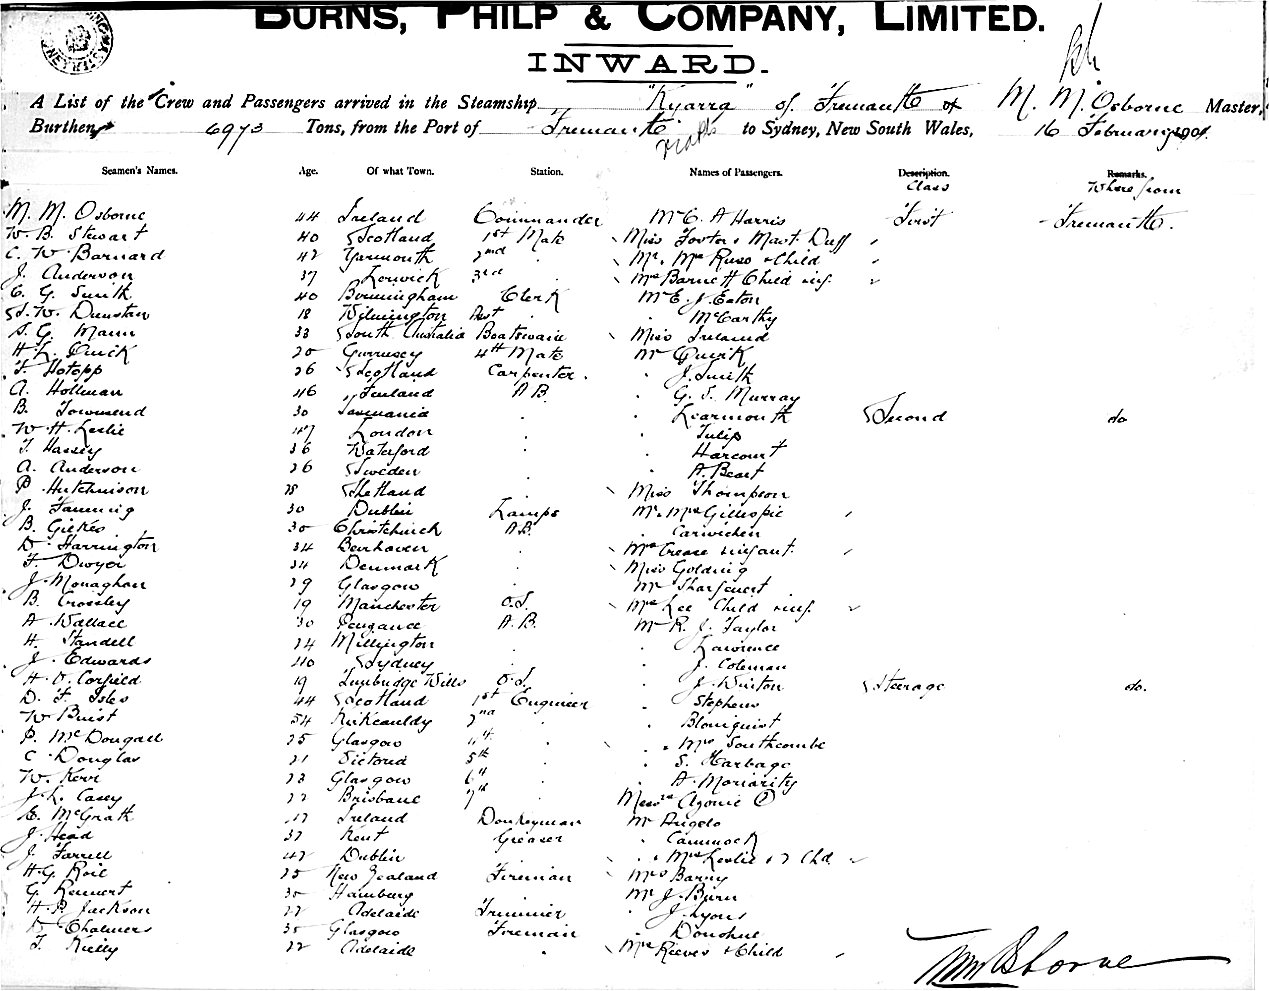 BURNS, PHILP & COMPANY, LIMITED.
INWARD.
A List of the Crew and Passengers arrived in the Steamship "Kyarra" of Fremantle M. M. Osborne Master,
Burthen 6973 Tons, from the Port of Fremantle to Sydney, New South Wales, 16 February 190
Seamen's Names. Age. Of what Town. Station. Names of Passengers. Description. Remarks.
Class Where from
M. M. Osborne 44 Ireland Commander Mr C. A Harris First Fremantle.
W. B. Stewart 40 Scotland 1st Mate Miss Foster & Mast. Duff
C. W. Barnard 42 Yarmouth 2nd Mr. Mrs Russo & Child
J. Anderson 37 Lerwick 3rd Mrs Barnett Child inf.
C. G. Smith 40 Birmingham Clerk Mr E. J. Eaton
W. Dunstan 18 Wilmington Asst McCarthy
S. G. Mann 33 South Australia Boatswain Miss Ireland
H. L. Quick 20 Guernsey 4th Mate Mr Quirk
F. Hotopp 26 Scotland Carpenter. J. Smith
A. Hollman 46 Finland A B. G. S. Murray
B. Townsend 30 Tasmania Learmonth Second do
W H. Leslie 47 London Tulip
T. Hassey 36 Waterford Harcourt
A. Anderson 26 Sweden A Beart
P Hutchinson 28 Shetland Miss Thompson
J. Fanning 30 Dublin Lamps Mr. Mrs Gillespie
B. 30 Christchurch A.B.
D. Harrington 34 Beerhaven Mrs Crease infant.
F. Dwyer 34 Denmark Miss Golding
J. Monaghan 29 Glasgow Mr
B. Crossley 19 Manchester O.S. Mrs Lee Child inf.
A. Wallace 30 Penzance A.B. Mr R. J. Taylor
H. Standell 24 Millington Lawrence
J. Edwards 40 Sydney J. Coleman
H. O. Corfield 19 Tunbridge Wells O.S. J. Winton Steerage do.
D. F. Isles 44 Scotland 1st Engineer Stephens
W Buist 54 Kirkcauldy 2nd Blomquist
P. McDougall 25 Glasgow 4th Mrs Southcombe
C. Douglas 21 Victoria 5th S. Harbage
W. Kerr 23 Glasgow 6th A. Moriarity
J. L. Casey 22 Brisbane 7th Messrs
E. McGrath 47 Ireland Donkeyman Mr Angelo
J. Head 37 Kent Greaser Cammock
J. Farrell 42 Dublin Mrs Leslie & 2 Chd.
H. G. Roil 25 New Zealand Fireman Mrs Barny
G. Rennert 35 Hamburg Mr J. Burn
H. P. Jackson 27 Adelaide Trimmer J. Lyons
D. Chalmers 35 Glasgow Fireman Donohue
T. Kielly 22 Adelaide Mrs Reeves & Child
MM Osborne